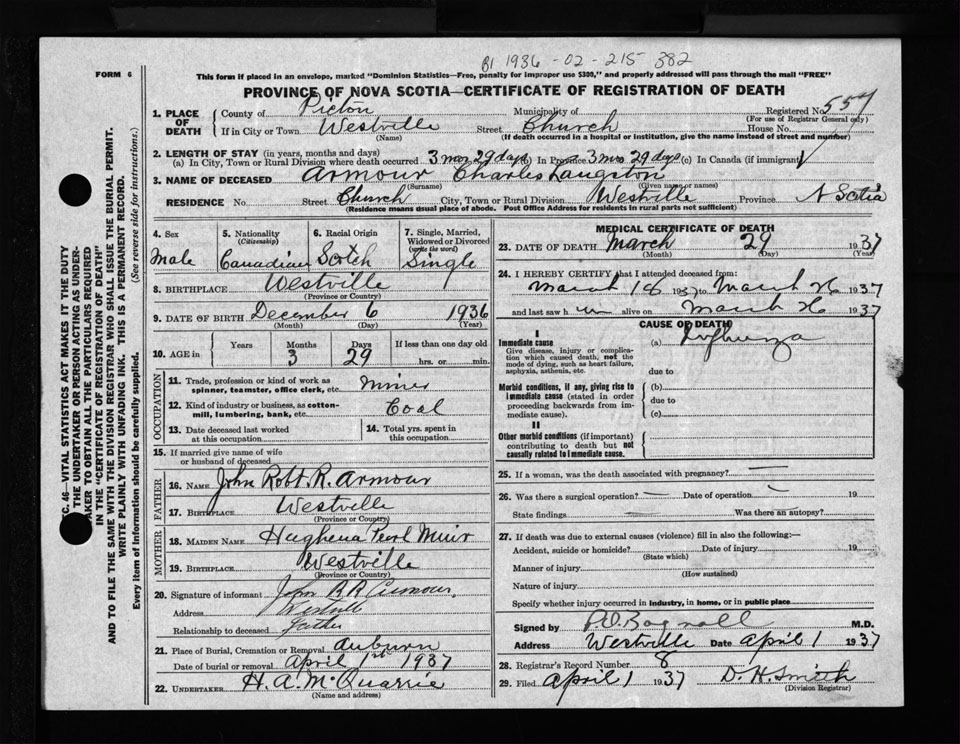 B1 1936-02-215-382
FORM 6
This form if placed in an envelope, marked "Dominion Statistics—Free, penalty for improper use $300," and properly addressed will pass through the mail "FREE"
PROVINCE OF NOVA SCOTIA—CERTIFICATE OF REGISTRATION OF DEATH
SEC. 46—VITAL STATISTICS ACT MAKES IT THE DUTY
THE UNDERTAKER OR PERSON ACTING AS UNDER-
TAKER TO OBTAIN ALL THE PARTICULARS REQUIRED
IN THE "CERTIFICATE OF REGISTRATION OF DEATH"
AND TO FILE THE SAME WITH THE DIVISION REGISTRAR WHO SHALL ISSUE THE BURIAL PERMIT.
WRITE PLAINLY WITH UNFADING INK. THIS IS A PERMANENT RECORD.
Every item of Information should be carefully supplied. (See reverse side for instructions.)
1. PLACE OF DEATH County of Picton Municipality of Registered No. 557
(For use of Registrar General only)
If in City or Town Westville Street Church House No.
(Name) (If death occurred in a hospital or institution, give the name instead of street and number)
2. LENGTH OF STAY (in years, months and days)
(a) In City, Town or Rural Division where death occurred 3 mos 29 days (b) In Province 3 mos 29 days (c) In Canada (if immigrant)
3. NAME OF DECEASED Armour Charles Langston
(Surname) (Given name or names)
RESIDENCE No. Street Church City, Town or Rural Division Westville Province N Scotia
(Residence means usual place of abode. Post Office Address for residents in rural parts not sufficient)
4. Sex 5. Nationality (Citizenship) 6. Racial Origin 7. Single, Married, Widowed or Divorced (write the word)
Male Canadian Scotch Single
8. BIRTHPLACE Westville
(Province or Country)
9. DATE OF BIRTH December 6 1936
(Month) (Day) (Year)
10. AGE in Years Months Days If less than one day old
3 29 hrs. or min.
OCCUPATION
11. Trade, profession or kind of work as spinner, teamster, office clerk, etc. miner
12. Kind of industry or business, as cotton-mill, lumbering, bank, etc. Coal
13. Date deceased last worked at this occupation 14. Total yrs. spent in this occupation
15. If married give name of wife or husband of deceased
FATHER
16. NAME John Robt. R. Armour
17. BIRTHPLACE Westville
(Province or Country)
MOTHER
18. MAIDEN NAME Hughena Pearl Muir
19. BIRTHPLACE Westville
(Province or Country)
20. Signature of informant John R R Armour
Address Westville
Relationship to deceased father
21. Place of Burial, Cremation or Removal Auburn
Date of burial or removal April 1st 1937
22. UNDERTAKER H. A. McQuarrie
(Name and address)
MEDICAL CERTIFICATE OF DEATH
23. DATE OF DEATH March 29 1937
(Month) (Day) (Year)
24. I HEREBY CERTIFY that I attended deceased from:
March 18 1937 to March 26 1937
and last saw him alive on March 26 1937
CAUSE OF DEATH
I
Immediate cause (a) Influenza
Give disease, injury or complication which caused death, not the mode of dying, such as heart failure, asphyxia, asthenia, etc.
due to
Morbid conditions, if any, giving rise to immediate cause (stated in order proceeding backwards from immediate cause). (b)
due to
(c)
II
Other morbid conditions (if important) contributing to death but not causally related to immediate cause.
25. If a woman, was the death associated with pregnancy? —
26. Was there a surgical operation? — Date of operation — 19
State findings Was there an autopsy?
27. If death was due to external causes (violence) fill in also the following:—
Accident, suicide or homicide? Date of injury 19
(State which)
Manner of injury
(How sustained)
Nature of injury
Specify whether injury occurred in industry, in home, or in public place
Signed by Bagnall M.D.
Address Westville Date April 1 1937
28. Registrar's Record Number 8
29. Filed April 1 1937 D. H. Smith
(Division Registrar)